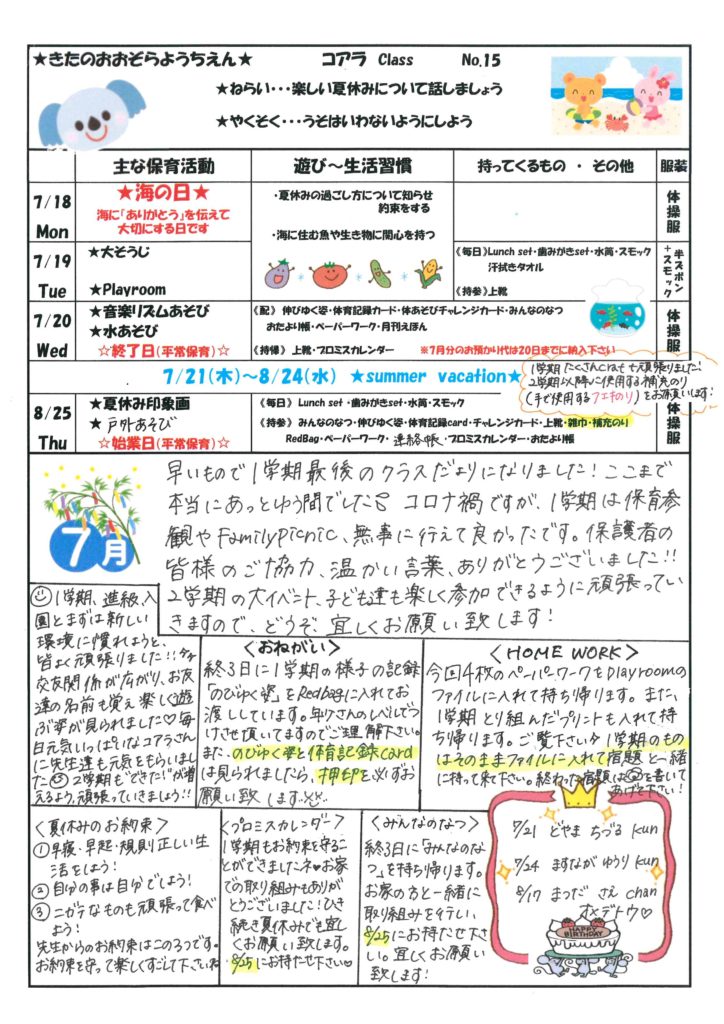 ★きたのおおぞらようちえん★ コアラ Class No.15
★ねらい・・・楽しい夏休みについて話しましょう
★やくそく・・・うそはいわないようにしよう
主な保育活動 遊び～生活習慣 持ってくるもの ・ その他 服装
7/18
Mon
★海の日★
海に「ありがとう」を伝えて
大切にする日です
・夏休みの過ごし方について知らせ
約束をする
・海に住む魚や生き物に関心を持つ
体操服
7/19
Tue
★大そうじ
★Playroom
《毎日》Lunch set・歯みがきset・水筒・スモック
汗拭きタオル
《持参》上靴
半ズボン+スモック
7/20
Wed
★音楽リズムあそび
★水あそび
☆終了日(平常保育)☆
《配》 伸びゆく姿・体育記録カード・体あそびチャレンジカード・みんなのなつ
おたより帳・ペーパーワーク・月刊えほん
《持帰》 上靴・プロミスカレンダー ※7月分のお預かり代は20日までに納入下さい
体操服
7/21(木)～8/24(水) ★summer vacation★
1学期たくさんcraftも頑張りました!
2学期以降に使用する補充のり
(手で使用するフエキのり)をお願いします!
8/25
Thu
★夏休み印象画
★戸外あそび
☆始業日(平常保育)☆
《毎日》 Lunch set・歯みがきset・水筒・スモック
《持参》 みんなのなつ・伸びゆく姿・体育記録card・チャレンジカード・上靴・雑巾・補充のり
RedBag・ペーパーワーク・連絡帳・プロミスカレンダー・おたより帳
体操服
7月
早いもので1学期最後のクラスだよりになりました!ここまで
本当にあっとゆう間でした。コロナ禍ですが、1学期は保育参
観やFamilyPicnic、無事に行えて良かったです。保護者の
皆様のご協力、温かい言葉、ありがとうございました!!
2学期の大イベント、子ども達も楽しく参加できるように頑張ってい
きますので、どうぞ宜しくお願い致します!
1学期、進級、入
園とまずは新しい
環境に慣れようと、
皆よく頑張りました!!
交友関係が広がり、お友
達の名前も覚え楽しく遊
ぶ姿が見られました♡毎
日元気いっぱいなコアラさん
に先生達も元気をもらいまし
た 2学期も"できた"が増
えるよう、頑張っていきましょう!!
<おねがい>
終了日に1学期の様子の記録
『のびゆく姿』をRedbagに入れてお
渡ししています。年少さんのレベルでつ
けさせ頂いてますのでご理解下さい。
また、のびゆく姿と体育記録card
は見られましたら、押印を必ずお
願い致します
<HOME WORK>
今回4枚のペーパーワークもplayroomの
ファイルに入れて持ち帰ります。また、
1学期とり組んだプリントも入れて持
ち帰ります。ご覧下さい 1学期のもの
はそのままファイルに入れて宿題と一緒
に持って来て下さい。終わった宿題は を書いて
あげて下さい!
<夏休みのお約束>
①早寝・早起・規則正しい生
活をしよう!
②自分の事は自分でしよう!
③ニガテなものも頑張って食べ
よう!
先生からのお約束はこの3つです。
お約束を守って楽しくすごして下さいね
<プロミスカレンダー>
1学期もお約束を守るこ
とができましたネ♡お家
での取り組みもありが
とうございました!ひき
続き夏休みでも宜し
くお願い致します。
8/25にお持たせ下さい♡
<みんなのなつ>
終了日に「みんなのな
つ」を持ち帰ります。
お家の方と一緒に
取り組みを行い
8/25にお持たせ下さ
い。宜しくお願い
致します!
7/21 どやま ちづる Kun
7/24 ますなが ゆうり Kun
8/17 まつだ さえ chan
オメデトウ♡
HAPPY
BIRTHDAY